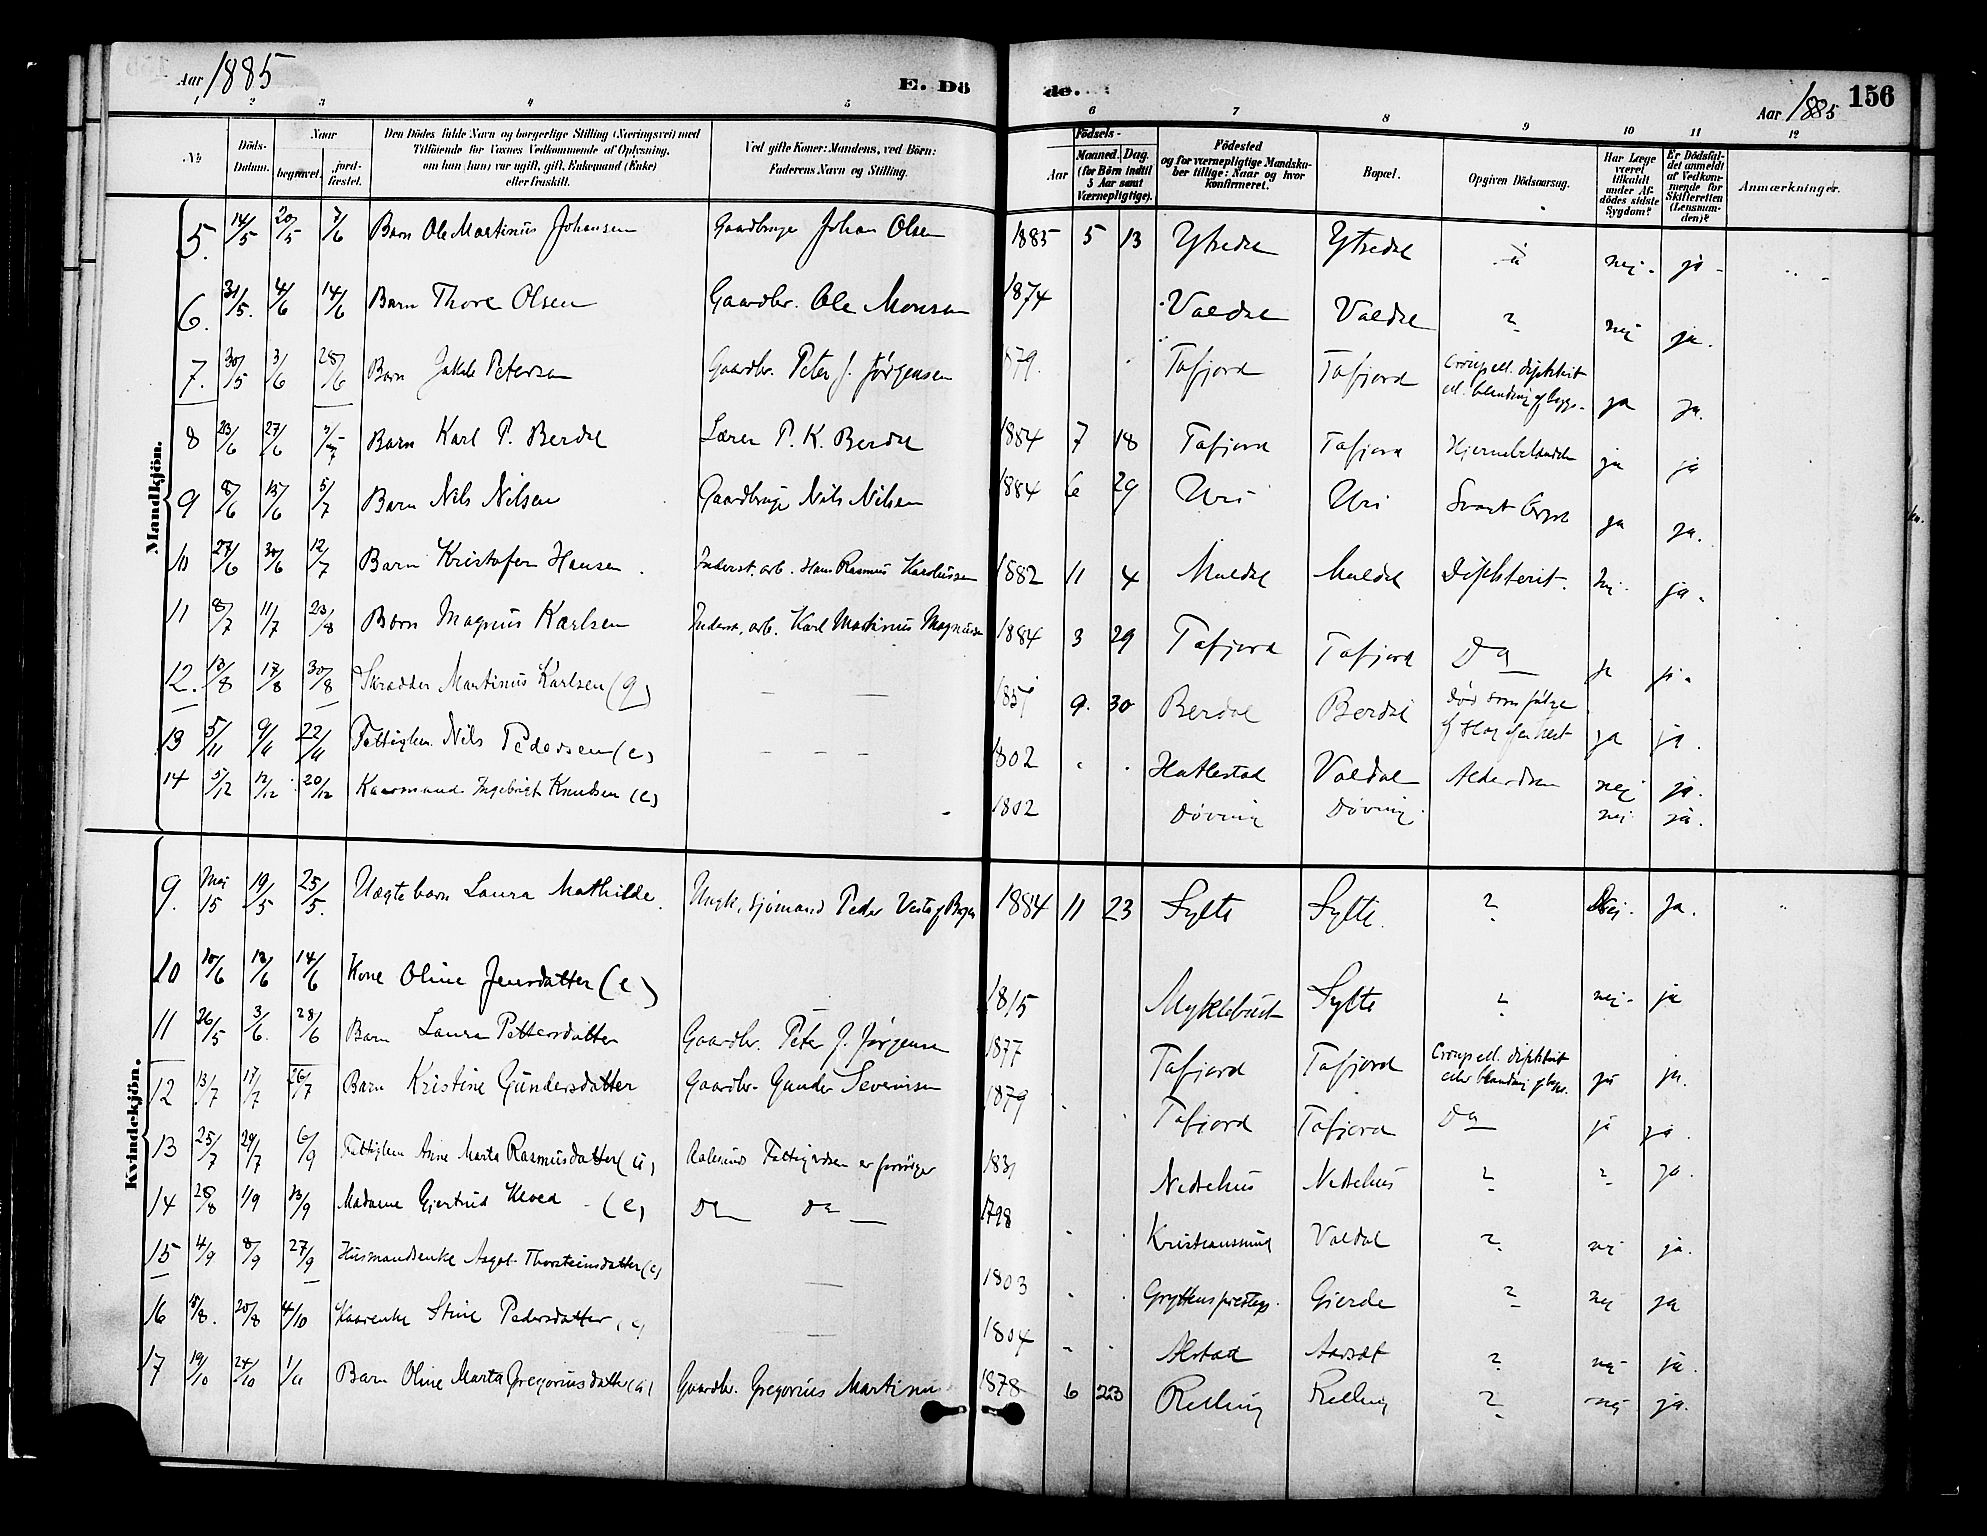 Aar 1885
E. Dö
de.
Aar 1885
156
1 2 3 4 5 6 7 8 9 10 11 12
No
Döds-Datum.
Naar begravet.
jordfæstet.
Den Dödes fulde Navn og borgerlige Stilling (Næringsvei) med Tilföiende for Voxnes Vedkommende af Oplysning, om han (hun) var ugift, gift, Enkemand (Enke) eller fraskilt.
Ved gifte Koner: Mandens, ved Börn: Faderens Navn og Stilling.
Födsels-
Aar
Maaned. Dag.
(for Börn indtil 5 Aar samt Værnepligtige).
Födested og for værnepligtige Mandskaber tillige: Naar og hvor konfirmeret.
Bopæl.
Opgiven Dödsaarsag.
Har Læge været tilkaldt under Afdödes sidste Sygdom?
Er Dödsfaldet anmeldt af Vedkommende for Skifteretten (Lensmanden)?
Anmærkninger.
Mandkjön.
5. 14/5 20/5 7/6 Barn Ole Martinus Johansen Gaardbruger Johan Olsen 1885 5 13 Ytredal Ytredal nej - ja -
6. 31/5. 4/6 14/6 Barn Thore Olsen Gaardbr. Ole Monsen 1874 Valdal Valdal ? nej ja.
7. 30/5 3/6 28/6 Barn Jakob Petersen Gaardbr. Peter J. Jørgensen 1879. Tafjord Tafjord Croup ell. difterit el. blanding af begge. ja ja.
8 23/6 27/6 Barn Karl P. Berdal Lærer P. K. Berdal 1884 7 18 Tafjord Tafjord ja ja
9 8/6 13/6 5/7 Barn Nils Nilsen Gaardbruger Nils Nilsen 1884 6 29 Uri Uri ja ja.
10 27/6 30/6 12/7 Barn Kristofer Hansen Inderst, arb. Hans Rasmus 1882 11 4 Muldal Muldal Difterit. nej. ja.
11 8/7 11/7 23/8 Barn Magnus Karlsen Inderst, arb. Karl Martinus Magnussen 1884 3 29 Tafjord Tafjord Do ja ja.
12. 13/8 17/8 30/8 Skrædder Martinus Karlsen (g) — — 9. 30 Berdal Berdal Død som følge af Slag af en hest ja ja.
13 5/11 9/11 22/11 Fattiglem Nils Pedersen (e) — — — 1802 Hatlestad Valdal Alderdom nej ja.
14 5/12 12/12 20/12 Kaarmand Ingebrigt Knudsen (e) 1802 Døving Døving nej ja.
Kvindekjön.
9. Maj 15 19/5 25/5. Uægte barn Laura Mathilde. Ungk, sjømand Peder 1884 11 23 Sylte Sylte. ? Nej. Ja.
10 10/6 13/6 14/6 Kone Oline Jensdatter (e) 1815 Myklebust Sylte ? nej - ja
11 26/5 3/6. 28/6 Barn Laura Pettersdatter Gaardbr. Peter J. Jørgensen 1877 Tafjord Tafjord Croup ell. difterit eller blanding af begge. ja ja.
12 13/7 17/7 26/7 Barn Kristine Gundersdatter Gaardbr. Gunder Severinsen 1879 Tafjord Tafjord Do ja ja.
13 25/7 29/7 6/9 Fattiglem Anne Marta Rasmusdatter (u) Aalesund Fattigvæsen er forsørger 1831 Nedrehus Nedrehus ? ? ja.
14 28/8 1/9 13/9 Madame Gjertrud (e) Do Do — 1798 Kristianssund Valdal ? nej ja.
15 4/9 8/9 27/9 Husmandsenke Thorsteinsdatter (e) — 1803 Gryttens prestegj. Gjerde ? nej ja
16 15/8. 20/8 4/10 Kaarenke Stine Pedersdatter (e) — 1804 Alstad ? nej ja.
17 19/10 24/10 1/11 Barn Oline Marta Gregoriusdatter (u) Gaardbr. Gregorius Martinus 1878 6 223 Relling Relling ? nej ja.